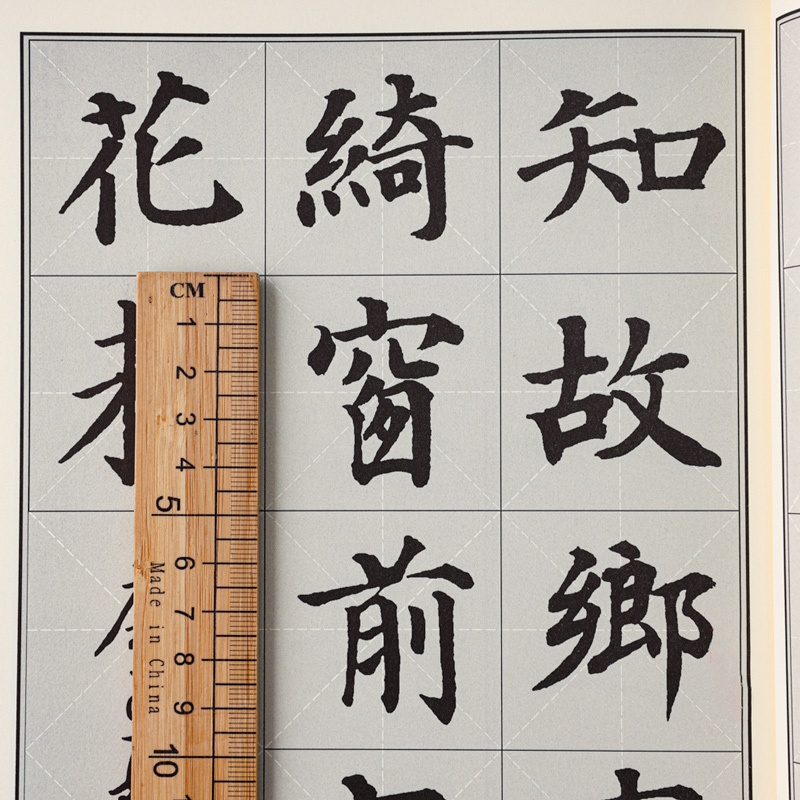 知故鄉
綺窗前
花
CM
1
2
3
4
5
6
7
8
9
10
Made in China